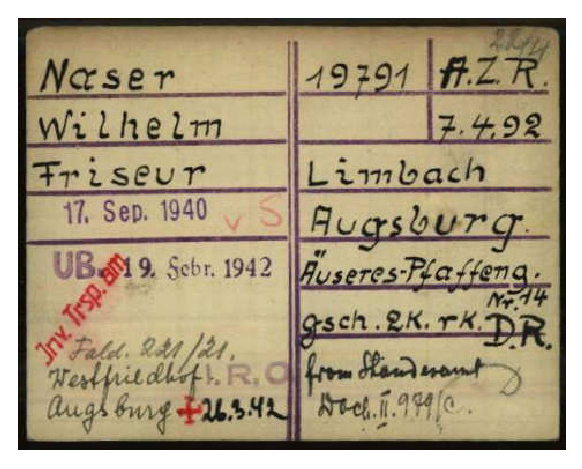 Naser
Wilhelm
Friseur
17. Sep. 1940 v S
UB. 19. Febr. 1942
Inv. Trsp. am
Feld. 221/21.
Westfriedhof. I.R.O
Augsburg + 26.3.42
2211
19791 A.Z.R.
7.4.92
Limbach
Augsburg.
Äuseres-Pfaffeng.
Nr. 14
gsch. 2K. rk. D.R.
from Standesamt
Doch. II. 979/C.